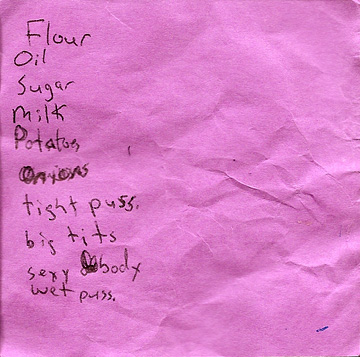 Flour
Oil
Sugar
Milk
Potatos
Onions
tight puss.
big tits
sexy body
wet puss.